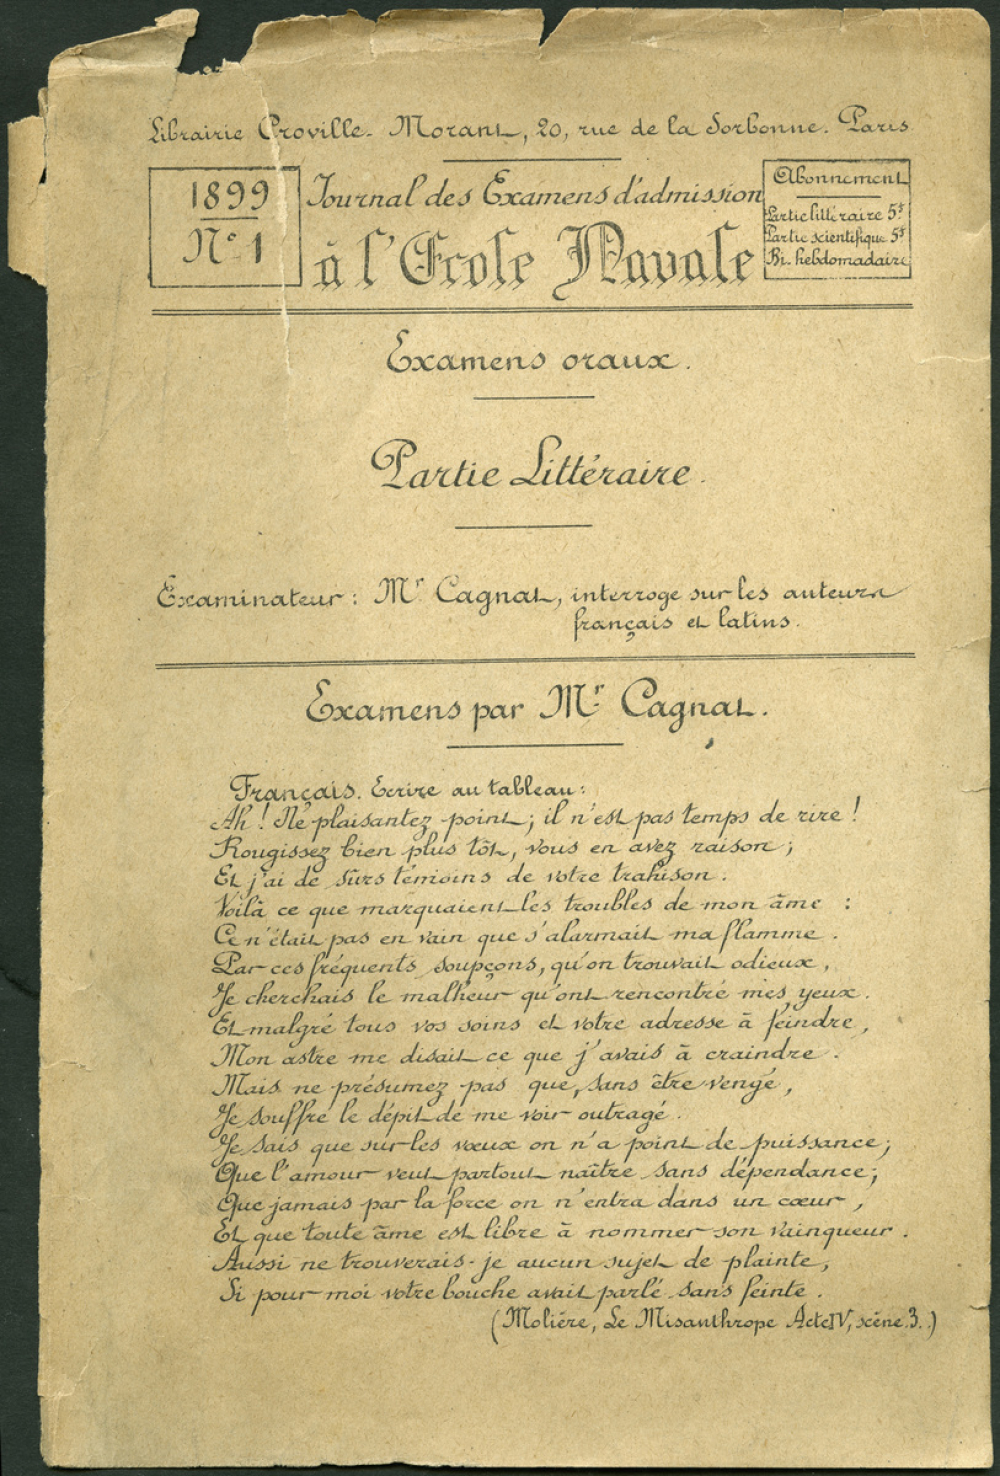 Librairie Croville-Morant, 20, rue de la Sorbonne. Paris
1899
N° 1
Journal des Examens d'admission
à l'École Navale
Abonnement
Partie littéraire 5f
Partie scientifique 5f
Bi-hebdomadaire
Examens oraux.
Partie Littéraire.
Examinateur : Mr. Cagnat, interroge sur les auteurs
français et latins.
Examens par Mr. Cagnat.
Français. Ecrire au tableau :
Ah ! Ne plaisantez point ; il n'est pas temps de rire !
Rougissez bien plus tôt, vous en avez raison ;
Et j'ai de sûrs témoins de votre trahison.
Voilà ce que marquaient les troubles de mon âme :
Ce n'était pas en vain que s'alarmait ma flamme.
Par ces fréquents soupçons, qu'on trouvait odieux,
Je cherchais le malheur qu'ont rencontré mes yeux.
Et malgré tous vos soins et votre adresse à feindre,
Mon astre me disait ce que j'avais à craindre.
Mais ne présumez pas que, sans être vengé,
Je souffre le dépit de me voir outragé.
Je sais que sur les vœux on n'a point de puissance ;
Que l'amour veut partout naître sans dépendance ;
Que jamais par la force on n'entra dans un cœur,
Et que toute âme est libre à nommer son vainqueur.
Aussi ne trouverais-je aucun sujet de plainte,
Si pour moi votre bouche avait parlé sans feinte.
(Molière, Le Misanthrope Acte IV, scène 3.)